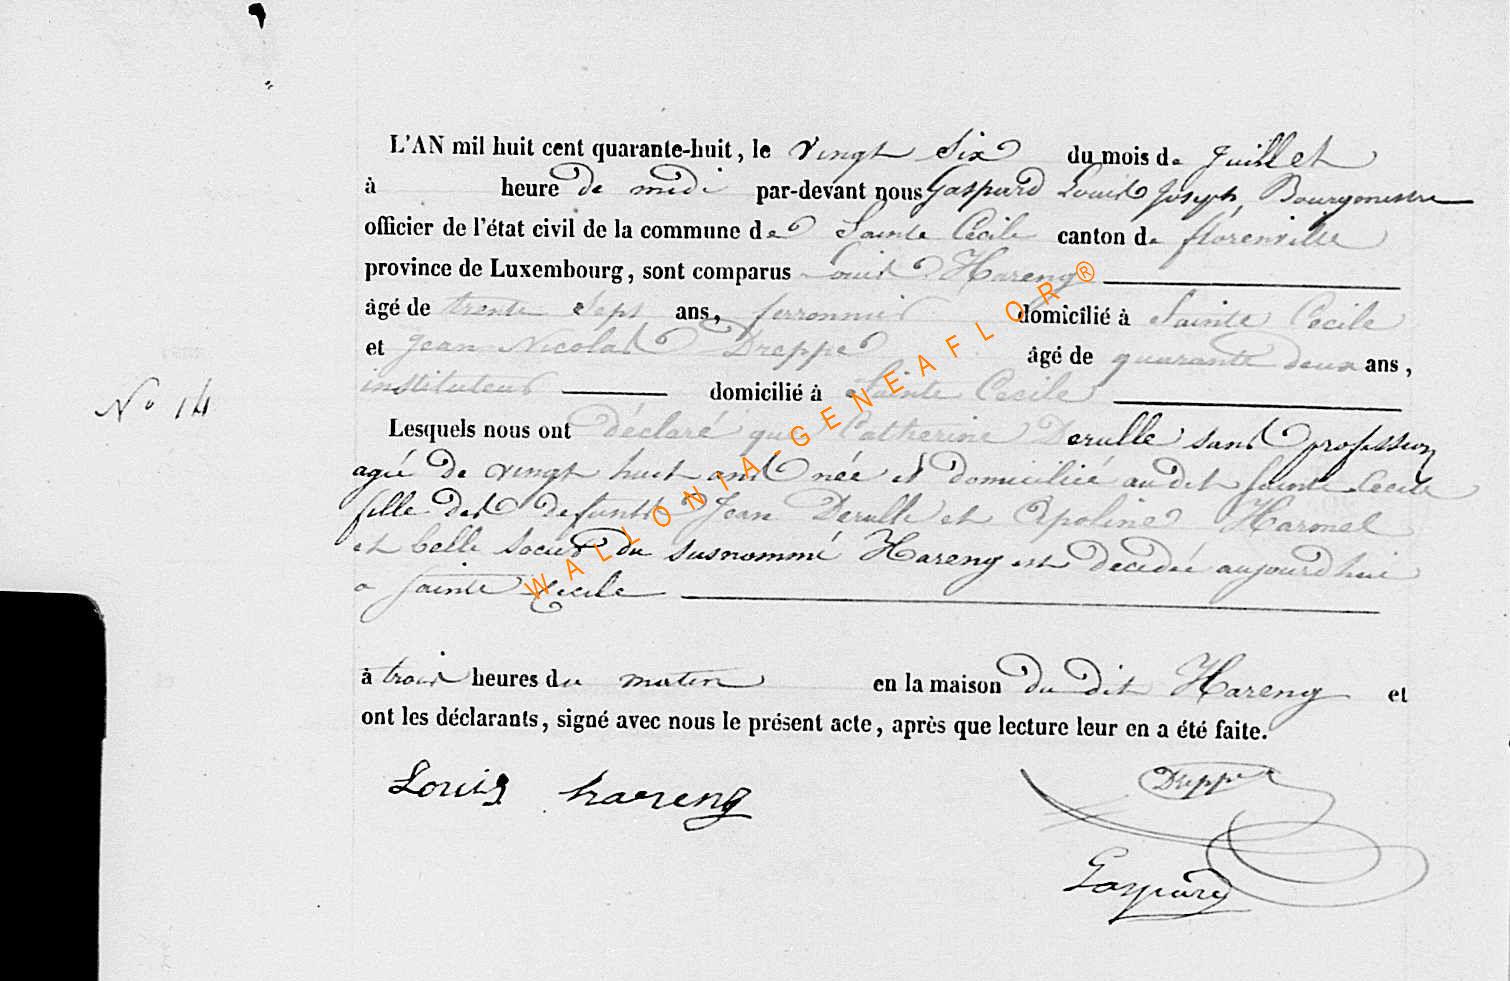 L'AN mil huit cent quarante-huit, le vingt six du mois de juillet
à heure de midi par-devant nous Gaspard Louis Joseph, Bourgmestre
officier de l'état civil de la commune de Sainte Cécile canton de florenville
province de Luxembourg, sont comparus Louis Hareng
âgé de trente sept ans, ferronnier domicilié à Sainte Cécile
et Jean Nicolas Dreppe âgé de quarante deux ans,
instituteur domicilié à Sainte Cecile
No 14
Lesquels nous ont déclaré que Catherine Derulle sans profession
agée de vingt huit ans née et domiciliée au dit Sainte Cecile
fille des defunts Jean Derulle et Apoline Harmel
et belle soeur du susnommé Hareng est decedée aujourd'hui
a Sainte Cecile
à trois heures du matin en la maison du dit Hareng et
ont les déclarants, signé avec nous le présent acte, après que lecture leur en a été faite.
Louis hareng
Dreppe
Gaspard
WALLONIA-GENEAFLOR®